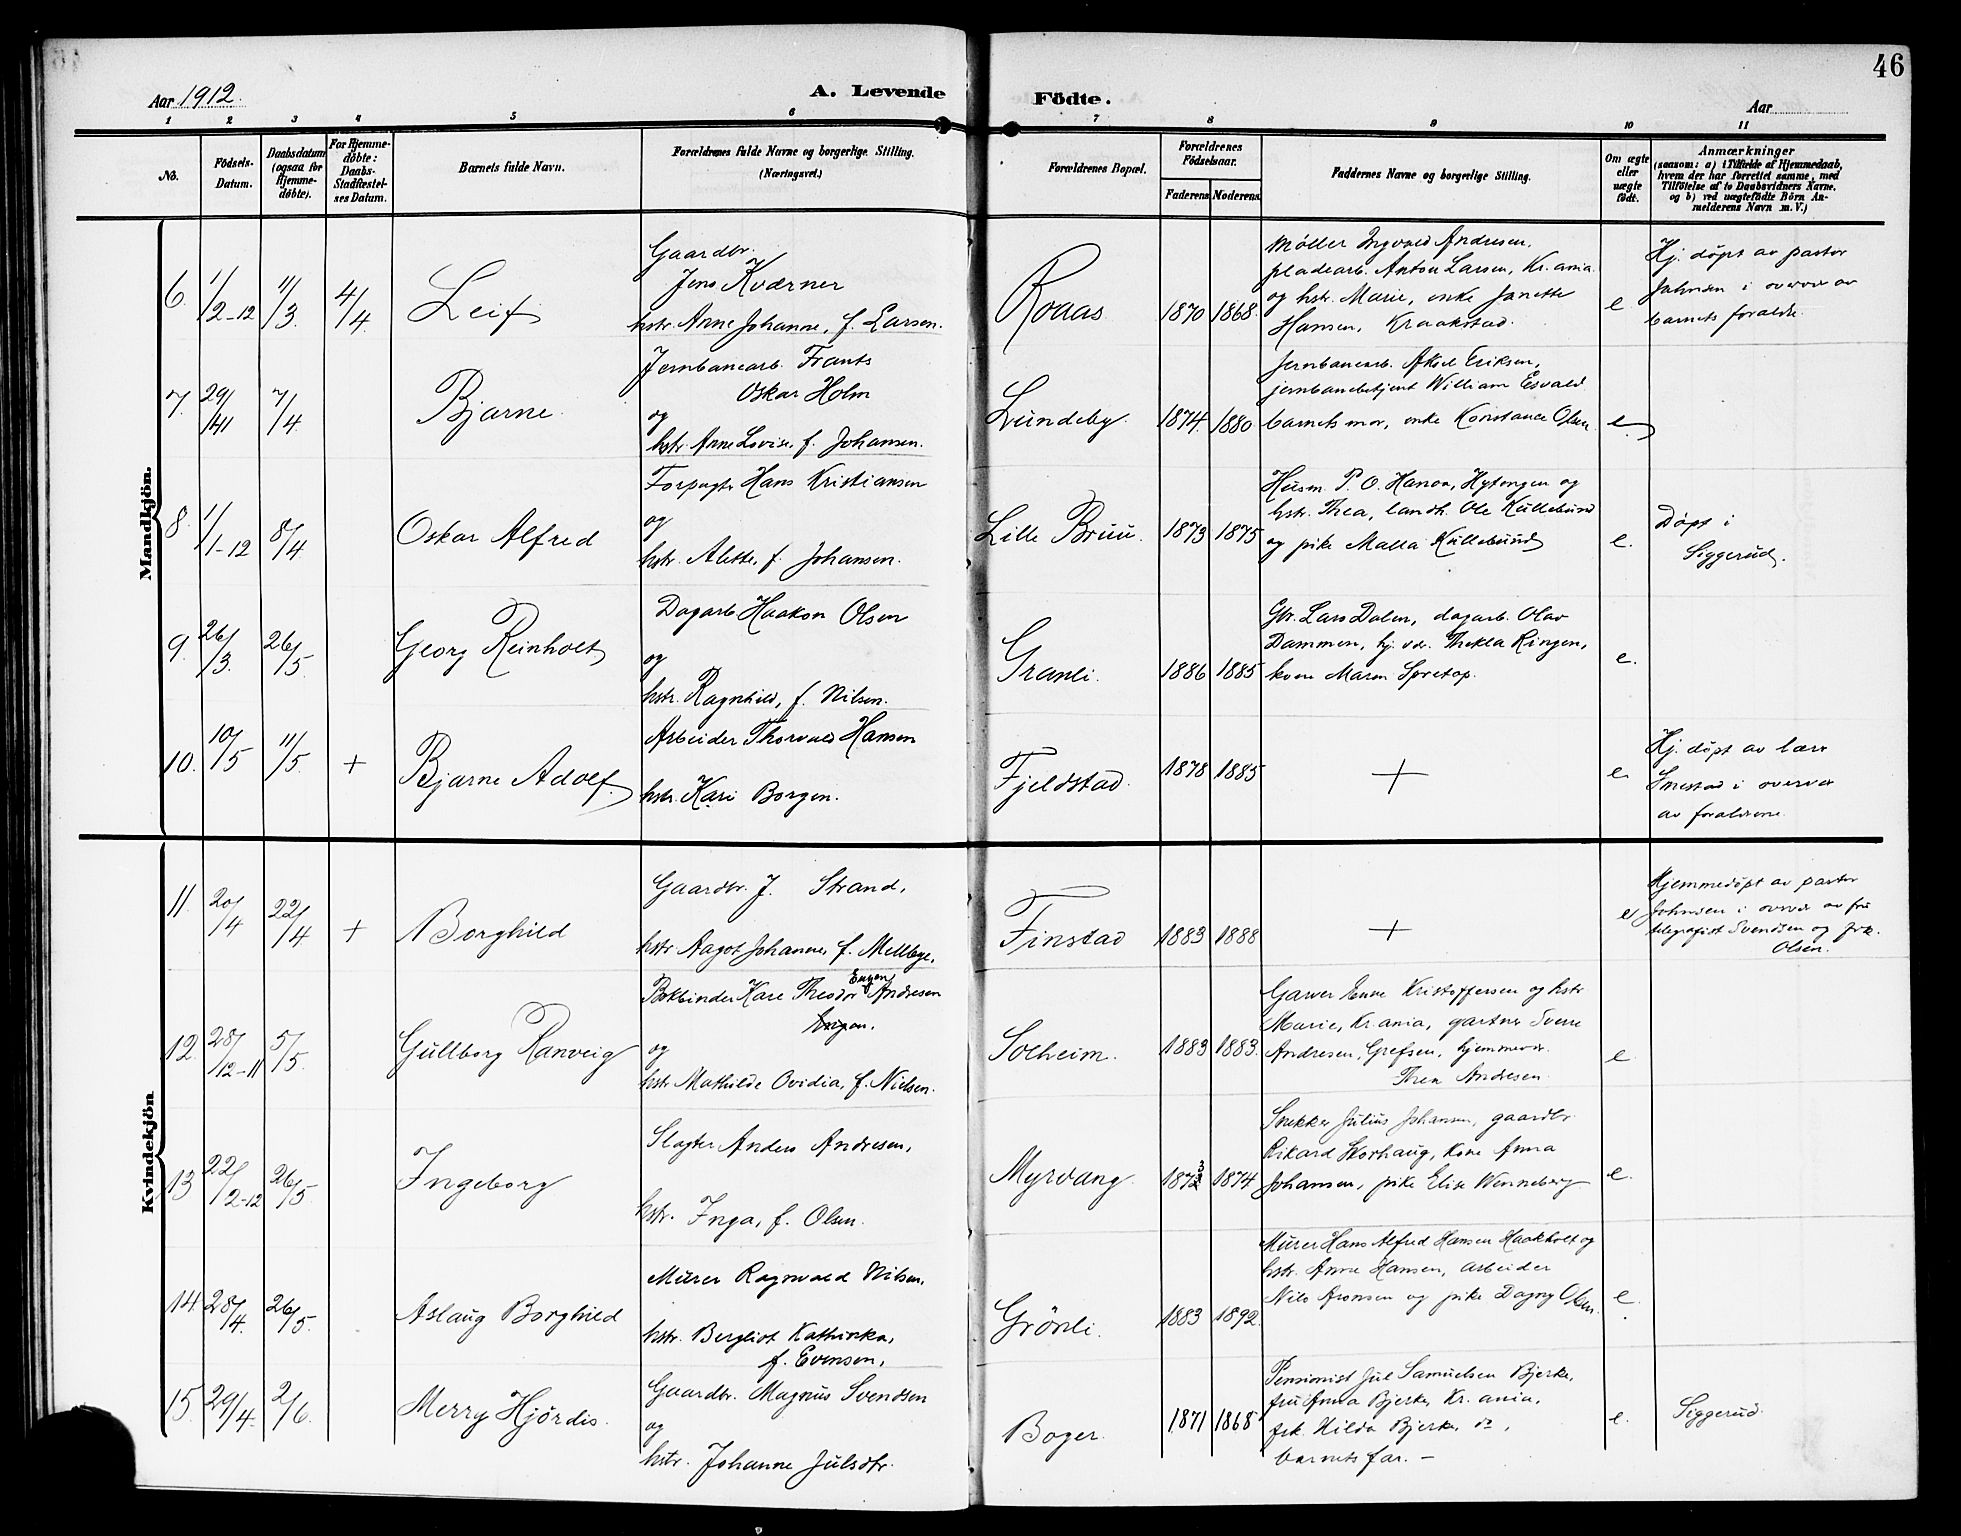 46
Aar 1912.
A. Levende Födte.
Aar
1 2 3 4 5 6 7 8 9 10 11
No.
Födsels-Datum.
Daabsdatum (ogsaa for Hjemme-döbte).
For Hjemme-döbte: Daabs-Stadfæstel-ses Datum.
Barnets fulde Navn.
Forældrenes fulde Navne og borgerlige Stilling. (Næringsvei.)
Forældrenes Bopæl.
Forældrenes Födselsaar.
Faderens Moderens
Faddernes Navne og borgerlige Stilling.
Om ægte eller uægte födt.
Anmærkninger
(saasom: a) i Tilfælde af Hjemmedaab,
hvem der har forrettet samme, med
Tilföielse af to Daabsvidners Navne,
og b) ved uægtefödte Börn An-
melderens Navn m. V.)
Mandkjön.
6. 1/2-12 11/3. 4/4 Leif
Gaardbr.
Jens Kværner
hstr. Anne Johanne, f. Larsen.
Roaas 1870 1868.
Møller Ingvald Andresen,
pladearb. Anton Larsen, Kr.ania
og hstr. Marie, enke Janette
Hansen, Kraakstad.
e
Hj. døpt av pastor
Johnsen i overvær av
barnets foræld.
7. 29/141 7/4. Bjarne.
Jernbanearb. Frants
Oskar Holm
og
hstr. Anne Lovise, f. Johansen.
Lundeby. 1874. 1880
Jernbanearb. Aksel Eriksen,
jernbanebetjent William Esvald
barnets mor, enke Konstance Olsen
e.
8. 1/1-12 8/4 Oskar Alfred
Forpagter Hans Kristiansen
og
hstr. Alette, f. Johansen.
Lille Bruu. 1873 1875
Husm. P. O. Hanoa, Hytengen og
hstr. Thea, landh. Ole Kullebund
og pike Malla Kullebund
e.
Døpt i
Siggerud.
9. 26/3. 26/5. Georg Reinholt
Dagarb Haakon Olsen
og
hstr. Ragnhild, f. Nilsen.
Granli. 1886 1885
Gbr. Lars Dalen, dagarb. Olav
Dammen, hj. vær. Thekla Ringen,
kone Maren Spretop.
e.
10. 10/5 11/5. + Bjarne Adolf.
Arbeider Thorvald Hansen
hstr. Kari Borgen.
Fjeldstad. 1878 1885
+
e.
Hj. døpt av lærer
Smestad i overvær
av forældrene.
Kvindekjön
11. 20/4 22/4 + Borghild
Gaardbr. J. Strand,
hstr. Aagot Johanne, f. Mellbye.
Finstad 1883 1888
+
e
Hjemmedøpt av pastor
Johnsen i overvær av fru
telegrafist Svendsen og frk.
Olsen.
12. 28/12-11 5/5. Gullborg Ranveig
Bokbinder Karl Theodor Engen Andresen
Engen.
og
hstr. Mathilde Ovidia, f. Nielsen.
Solheim. 1883 1883.
Garver Enne Kristoffersen og hstr.
Marie, Kr.ania, gartner Sverre
Andresen, Grefsen, hjemmevær.
Thea Andresen.
e
13 22/2-12 26/5. Ingeborg
Slagter Anders Andresen,
hstr. Inga, f. Olsen.
Myrvang. 1873 1874
Snekker Julius Johansen, gaardbr.
Rikard Skorhaug, Kone Anna
Johansen, pike Elise Wenneberg
e.
14. 28/4. 26/5. Aslaug Borghild
Murer Ragnvald Nilsen,
hstr. Bergliot Kathinka,
f. Evensen,
Grönli. 1883 1892.
Murer Hans Alfred Hansen Haakholt og
hstr. Anna Hansen, arbeider
Nils Aronsen og pike Dagny Olsen.
e.
15. 29/4. 2/6. Merry Hjördis.
Gaardbr. Magnus Svendsen
og
hstr. Johanne Julsdtr.
Boger. 1871 1868
Pensionist Jul Samuelsen Bjerke,
fru Anna Bjerke, Kr.ania,
frk. Hilda Bjerke, do,
barnets far. –
e.
Siggerud.